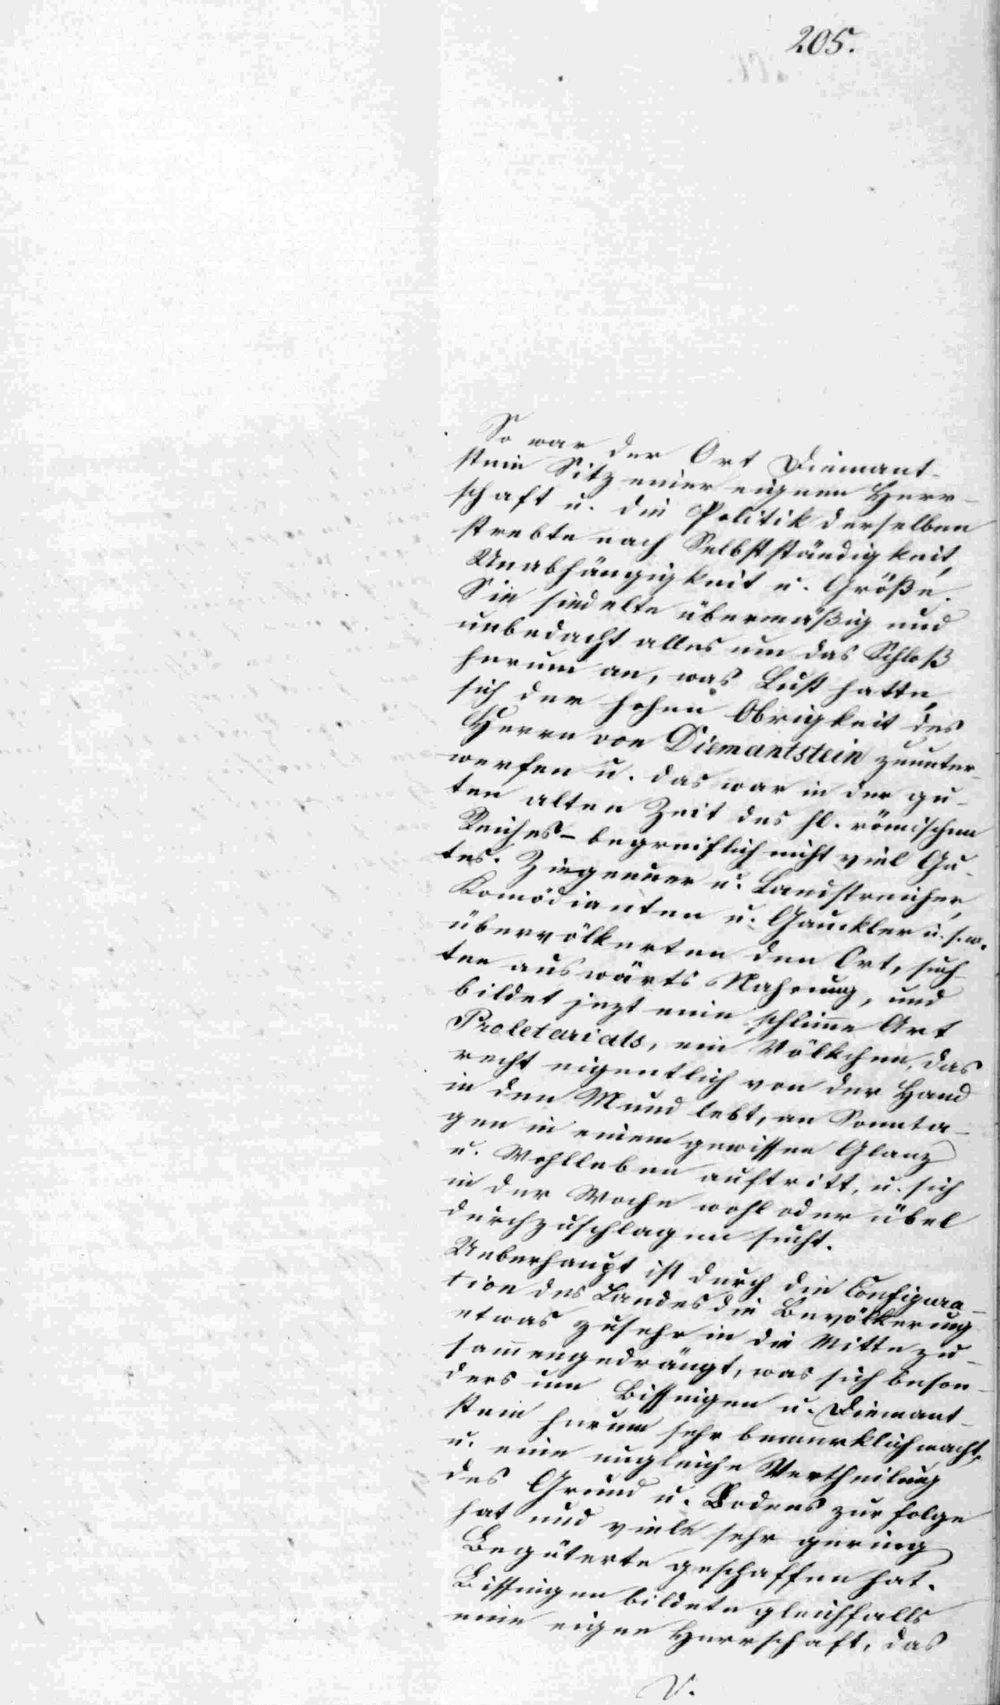 205.
So war der Ort Diemant-
stein Sitz einer eignen Herr-
schaft u. die Politik derselben
strebte nach Selbstständigkeit,
Unabhängigkeit u. Größe.
Sie siedelte übermäßig und
unbedacht alles um das Schloß
herum an, was Lust hatte,
sich der hohen Obrigkeit des
Herrn von Diemantstein zuunter-
werfen u. das war in der gu-
ten alten Zeit des hl. römischen
Reiches - begreiflich nicht viel Gu-
tes. Ziegeuner u. Landstreicher,
Komödianten u. Gauckler u. s. w.
übervölkerten den Ort, such-
ten auswärts Nahrung, und
bildet jezt eine schlim̄e Art
Proletariats, ein Völkchen, das
recht eigentlich von der Hand
in den Mund lebt, an Sonnta-
gen in einem gewissen Glanz
u. Wohlleben auftritt, u. sich
in der Woche wohl oder übel
durchzuschlagen sucht.
Ueberhaupt ist durch die Configura-
tion des Landes die Bevölkerung
etwas zusehr in die Mitte zu-
sam̄engedrängt, was sich beson-
ders um Bissingen u. Diemant-
stein herum sehr bemerklich macht,
u. eine ungleiche Vertheilung
des Grund u. Bodens zur folge
hat und viele sehr gering
Begüterte geschaffen hat.
Bissingen bildete gleichfalls
eine eigne Herrschaft, das